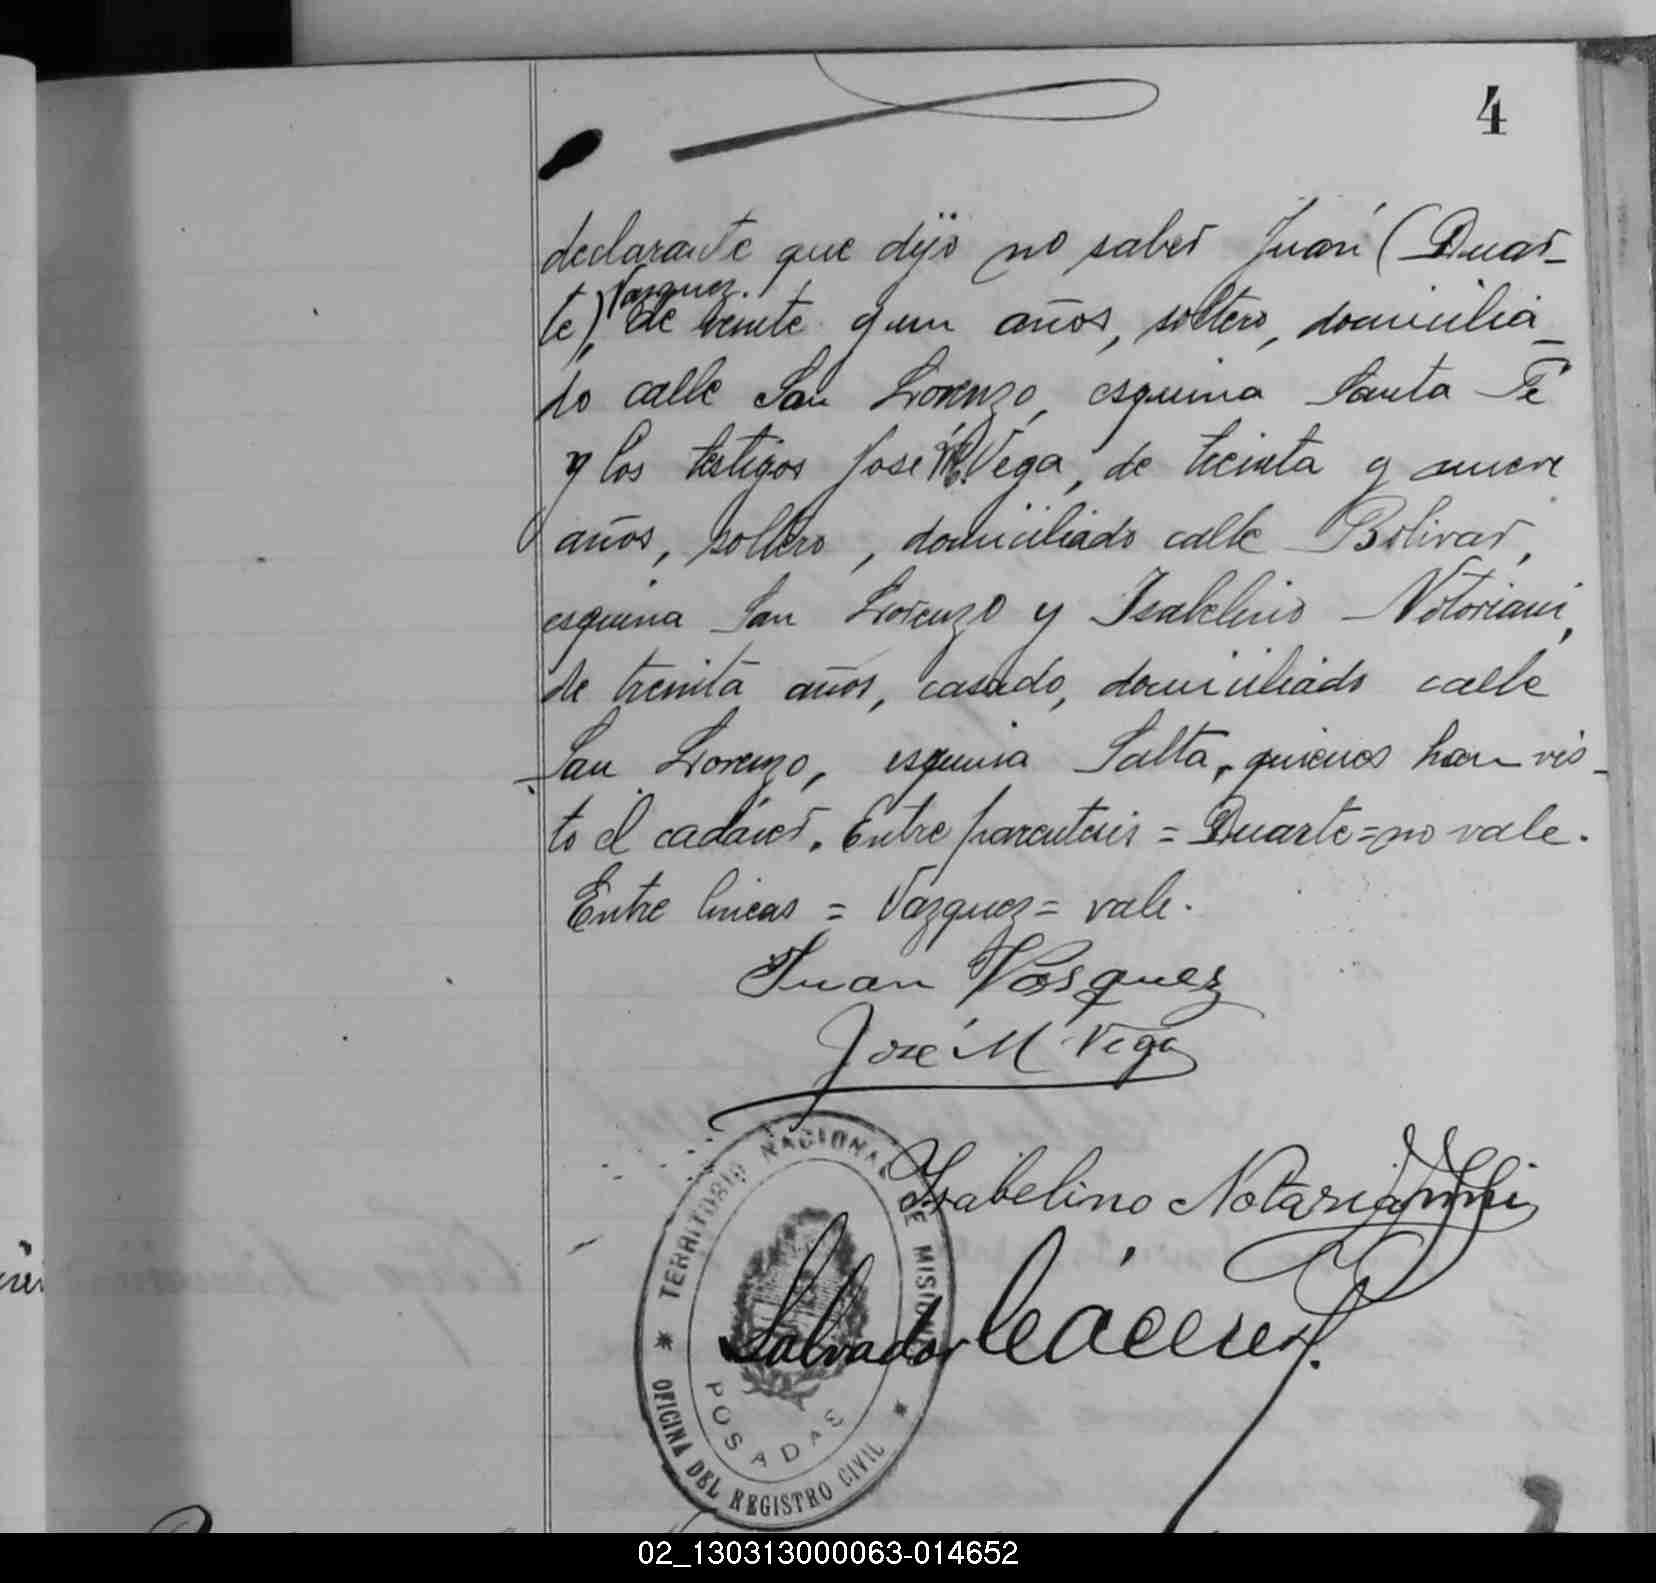 4
declarante que dijo no saber Juan (Duar-
te), Vazquez. de veinte y un años, soltero, domicilia-
do calle San Lorenzo, esquina Santa Fé
y los testigos José M. Vega, de treinta y nueve
años, soltero, domiciliado calle Bolivar,
esquina San Lorenzo y Isabelino Notoriani,
de treinta años, casado, domiciliado calle
San Lorenzo, esquina Salta, quienes han vis-
to el cadáver. Entre parentesis = Duarte = no vale.
Entre lineas = Vazquez = vale.
Juan Vasquez
José M Vega
Isabelino Notarianni
Salvador Cáceres.
TERRITORIO NACIONAL DE MISIONES
POSADAS
OFICINA DEL REGISTRO CIVIL
02_130313000063-014652